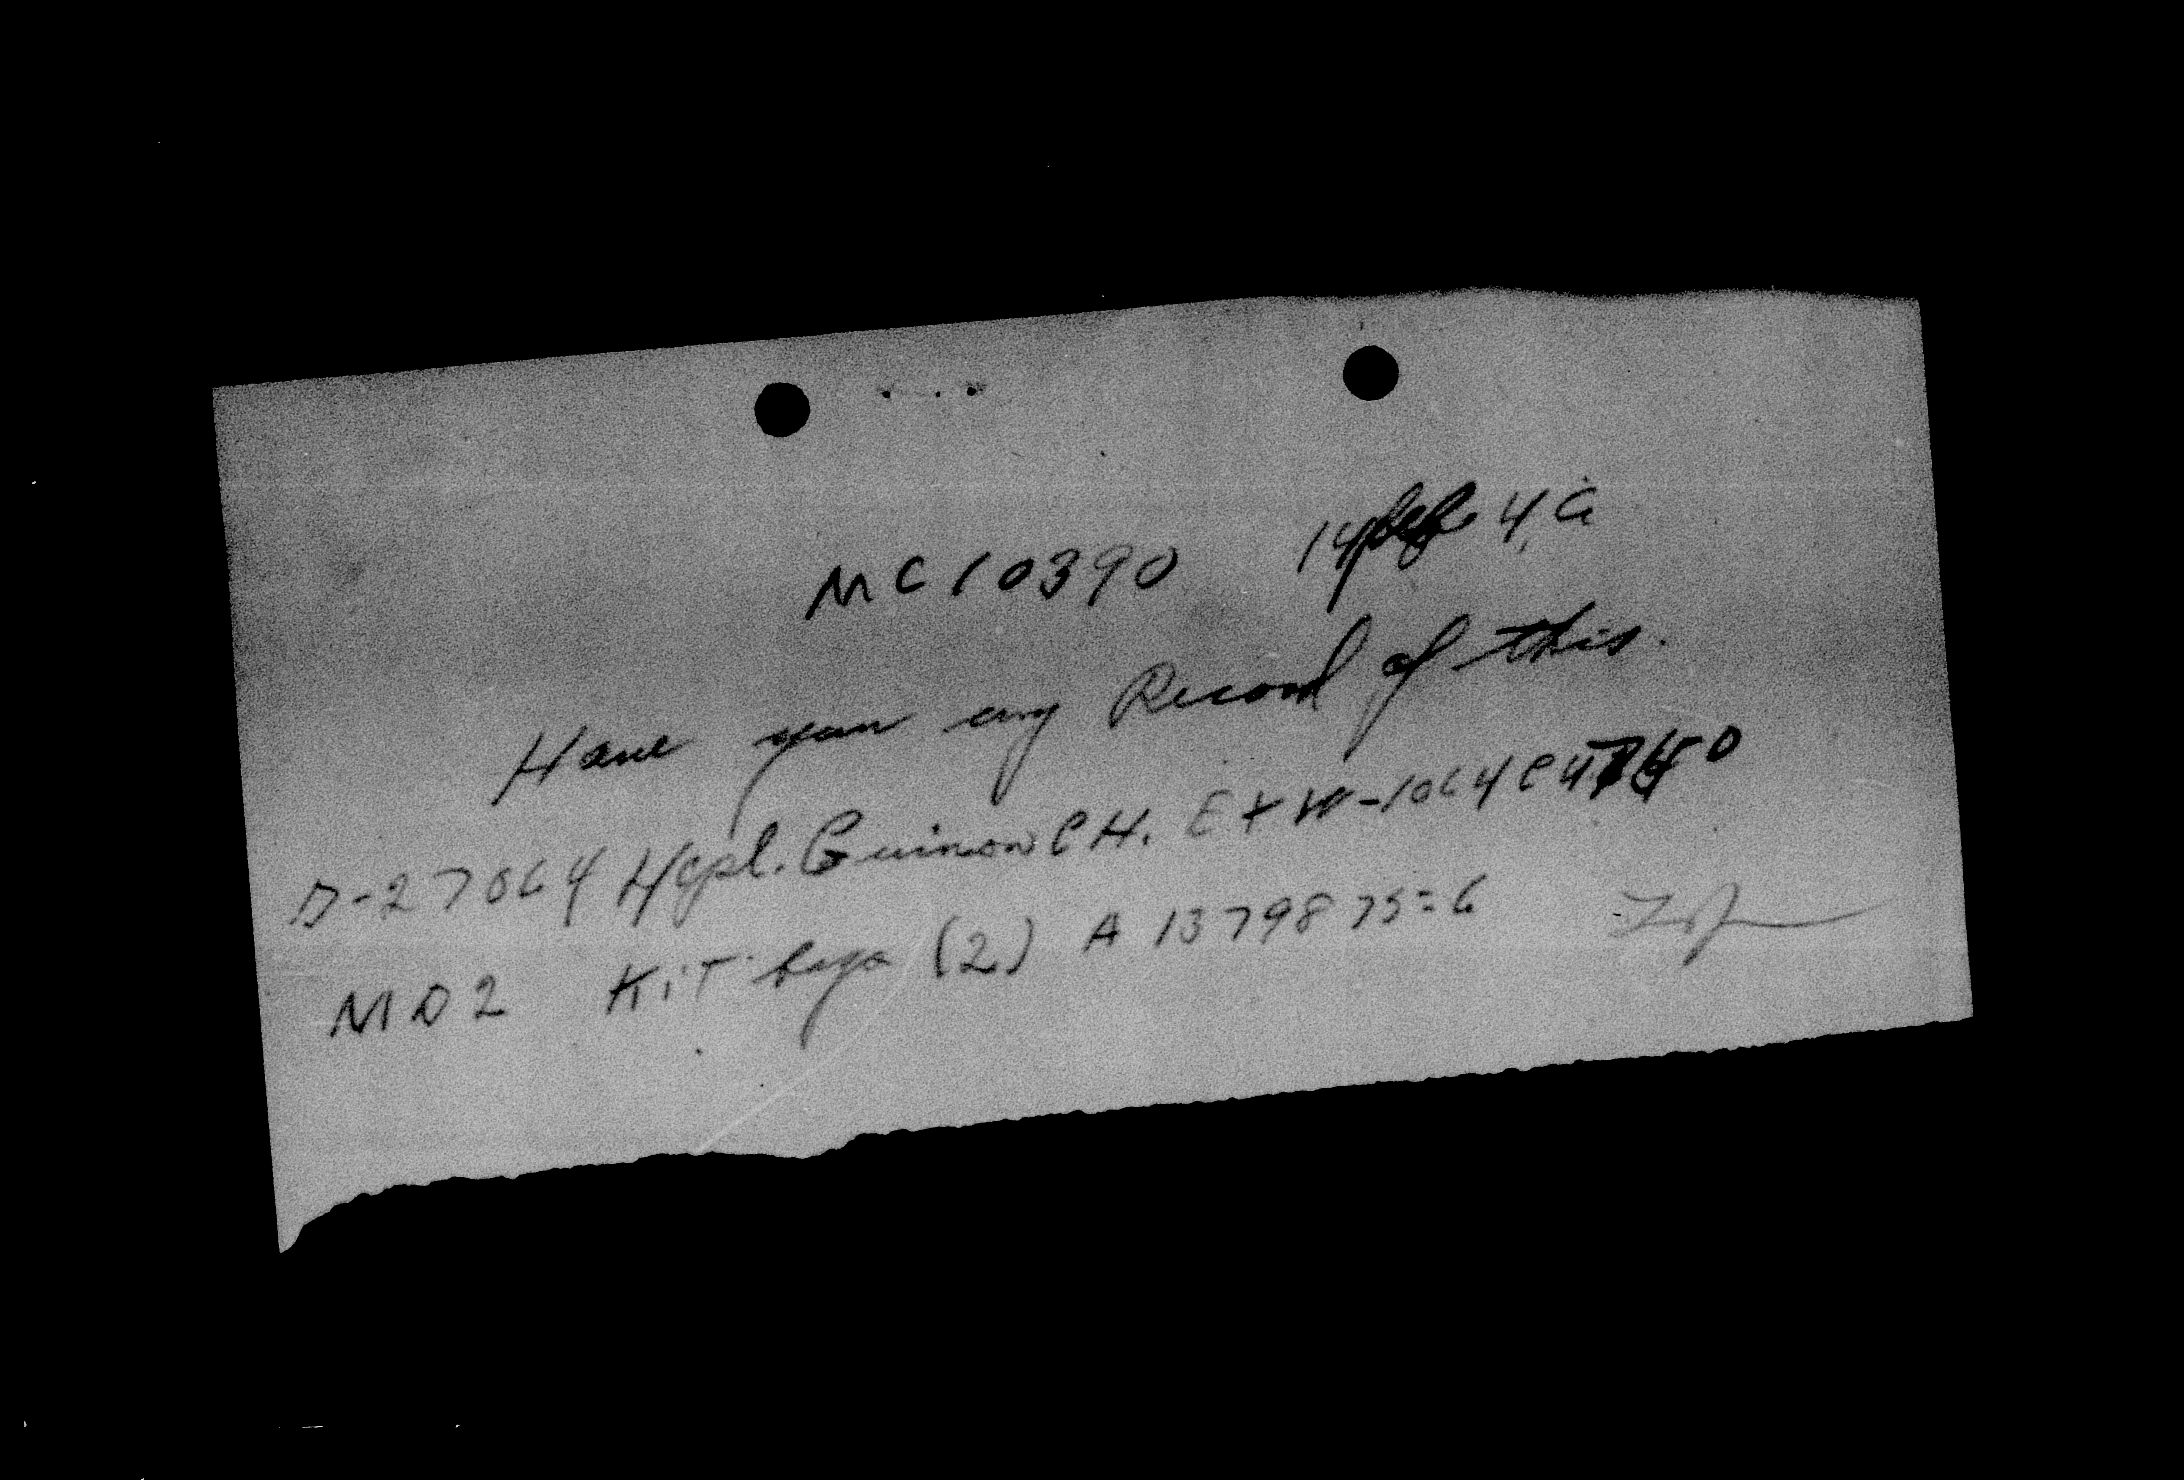 MC10390 14 4G
Have you any Record of this.
D-27064 H/Cpl. Guinon C H. E + W-1064
MD2 Kit bags (2) A 1379875=6